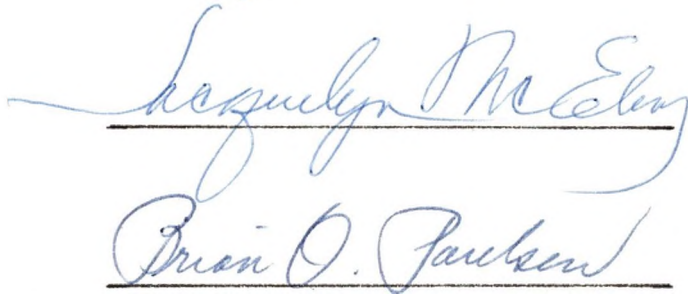 Jacquelyn McElroy
Brian O. Paulsen